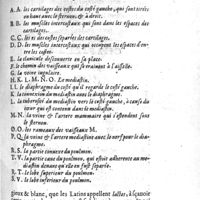 A. A. les cartilages des costes du costé gauche, qui sont tirés
en haut avec le sternon, & à droit.
B. B. les muscles intercostaux qui sont dans les espaces des
cartilages.
C. C. les os des costes separées des cartilages.
D. D. les muscles intercostaux qui occupent les espaces d'en-
tre les costes.
E. la clavicule descouverte en sa place.
F. le chemin des vaisseaux qui se trainent à l'aisselle.
G. la veine iugulaire.
H. K. L. M. N. O. Le mediastin.
I. I. le diaphragme du costé qu'il regarde le costé gauche.
K. l'espace du mediastin.
L. la tuberosité du mediastin vers le costé gauche, à cause du
cœur qui est dessous.
M. N. la veine & l'artere mammaire qui s'estendent sous
le sternon.
O. O. les rameaux du vaisseau M.
P. Q. la veine & l'artere mediastine avec le nerf pour le diaph-
ragme.
R. S. la partie contraire du poulmon.
T. V. la partie cave du poulmon, qui estoit adherente au me-
diastin devant qu'elle en fust separée.
R. T. le lobe superieur du poulmon.
S. V. le lobe inferieur du poulmon.
gieux & blanc, que les Latins appellent lactes, à sçavoir